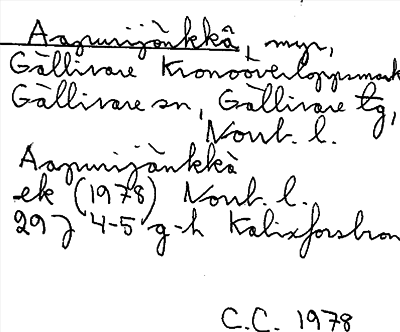 Aapunijänkkä, myr,
Gällivare Kronoöverloppsmark
Gällivare sn, Gällivare tg,
Norrb. l.
Aapunijänkkä
ek (1978) Norrb. l.
29J 4-5 g-h Kalixforsbron
C.C. 1978